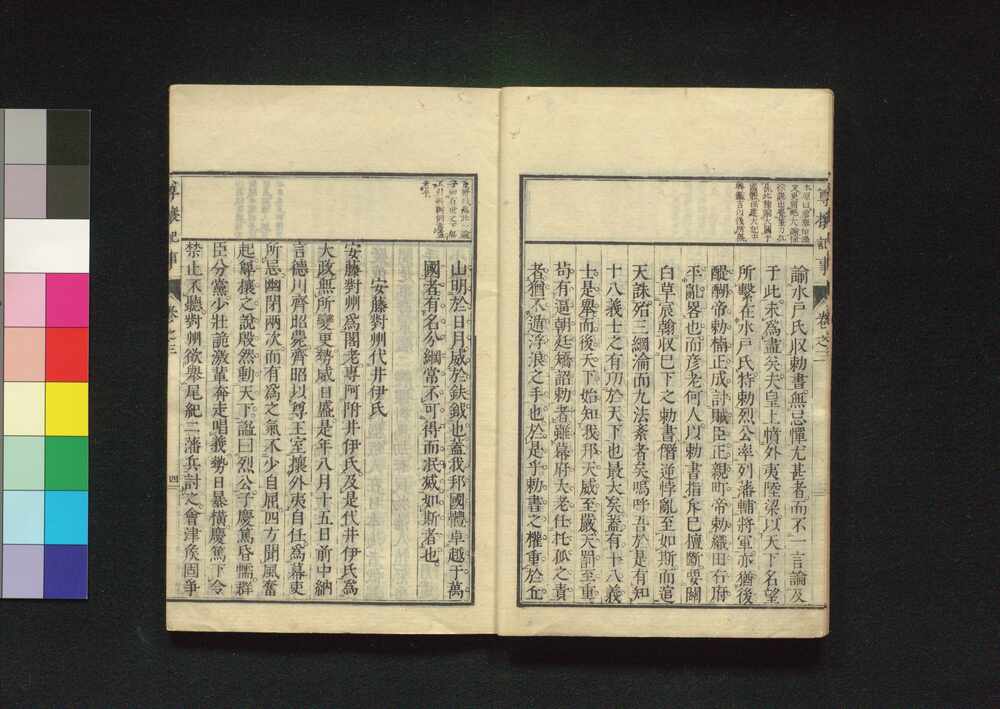 諭水戸氏収勅書無忌憚尤甚者而不一言論及
于此未為盡矣夫皇上憤外夷陸梁以天下名望
所繫在水戸氏特勅烈公率列藩輔將軍亦猶後
醍醐帝勅楠正成討賊臣正親町帝勅織田右府
平亂畧也而彦老何人以勅書指斥巳擅斷要關
白草宸翰收巳下之勅書僭逆悖亂至如斯而追
天誅殆三綱淪而九法紊者矣嗚呼吾於是有知
十八義士之有功於天下也最大矣蓋有十八義
士是舉而後天下始知我邦天威至嚴天罰至重
苟有逼朝廷矯詔勅者雖幕府大老任托孤之責
者猶不遁浮浪之手也於是乎勅書之權重於
山明於日月威於鈇鉞也蓋我邦國體卓越于萬
國者有名分綱常不可得而泯滅如斯者也
安藤對州代井伊氏
安藤對州為閣老專阿附井伊氏及是代井伊氏為
大政無所變更勢威日盛是年八月十五日前中納
言德川齊昭薨齊昭以尊王室攘外夷自任為幕吏
所忌幽閉兩次而有為之氣不少自屈四方聞風奮
起尊攘之說殷然動天下謚曰烈公子慶篤昏懦群
臣分黨少壯詭激輩奔走唱義勢日暴橫慶篤下令
禁止不聽對州欲舉尾紀二藩兵討之會津矦固爭
尊攘紀事
卷之三
四